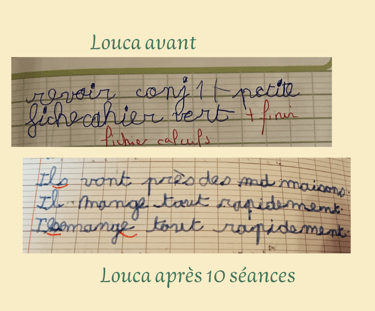 Louca avant
revoir conj 1 + petite
fiche cahier vert + finir
fichier calculs
Ils vont près des md maisons.
Il mange tout rapidement.
Ils mange tout rapidement.
Louca après 10 séances